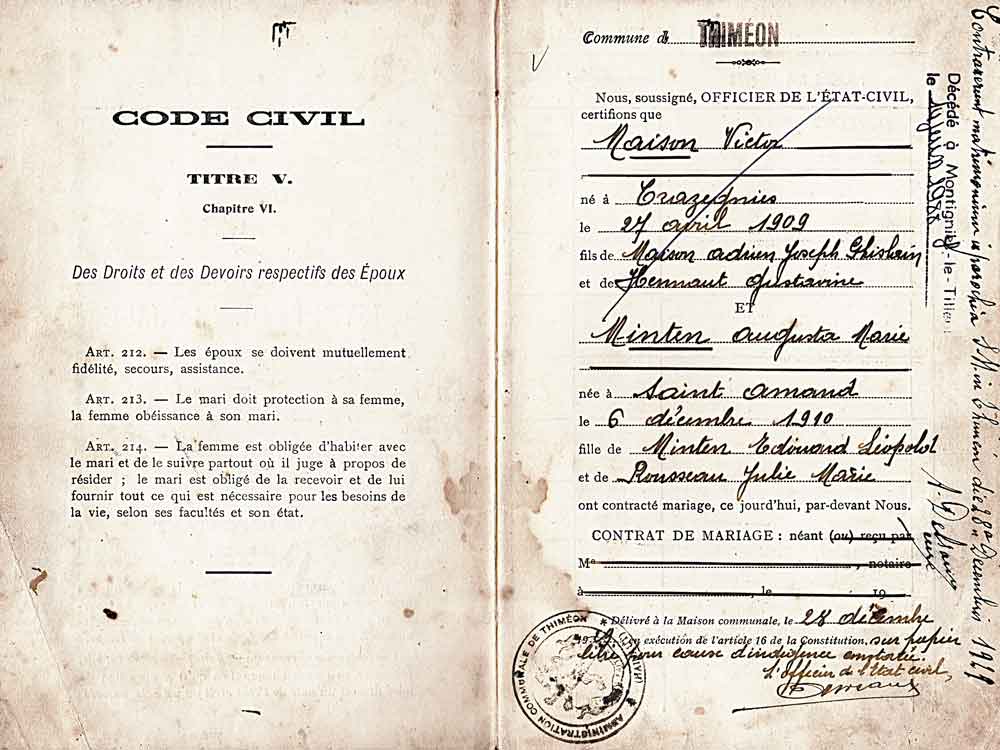 CODE CIVIL
TITRE V.
Chapitre VI.
Des Droits et des Devoirs respectifs des Époux
ART. 212. — Les époux se doivent mutuellement
fidélité, secours, assistance.
ART. 213. — Le mari doit protection à sa femme,
la femme obéissance à son mari.
ART. 214. — La femme est obligée d'habiter avec
le mari et de le suivre partout où il juge à propos de
résider ; le mari est obligé de la recevoir et de lui
fournir tout ce qui est nécessaire pour les besoins de
la vie, selon ses facultés et son état.
Commune d THIMÉON
Nous, soussigné, OFFICIER DE L'ÉTAT-CIVIL,
certifions que
Maison Victor
né à Trazegnies
le 27 avril 1909
fils de Maison Adrien Joseph Ghislain
et de Hennaut Gustavine
ET
Minten Augusta Marie
née à Saint Amand
le 6 décembre 1910
fille de Minten Edouard Léopold
et de Rousseau Julie Marie
ont contracté mariage, ce jourd'hui, par-devant Nous.
CONTRAT DE MARIAGE : néant (ou) reçu par
Me , notaire
à , le 19
Délivré à la Maison communale, le 28 décembre
19 en exécution de l'article 16 de la Constitution, sur papier
libre pour cause d'indigence constatée.
L'Officier de l'État civil,
ADMINISTRATION COMMUNALE DE THIMÉON
Décédé à Montignies-le-Tilleul
le
Contraxerunt matrimonium in parochia Decembris 1929